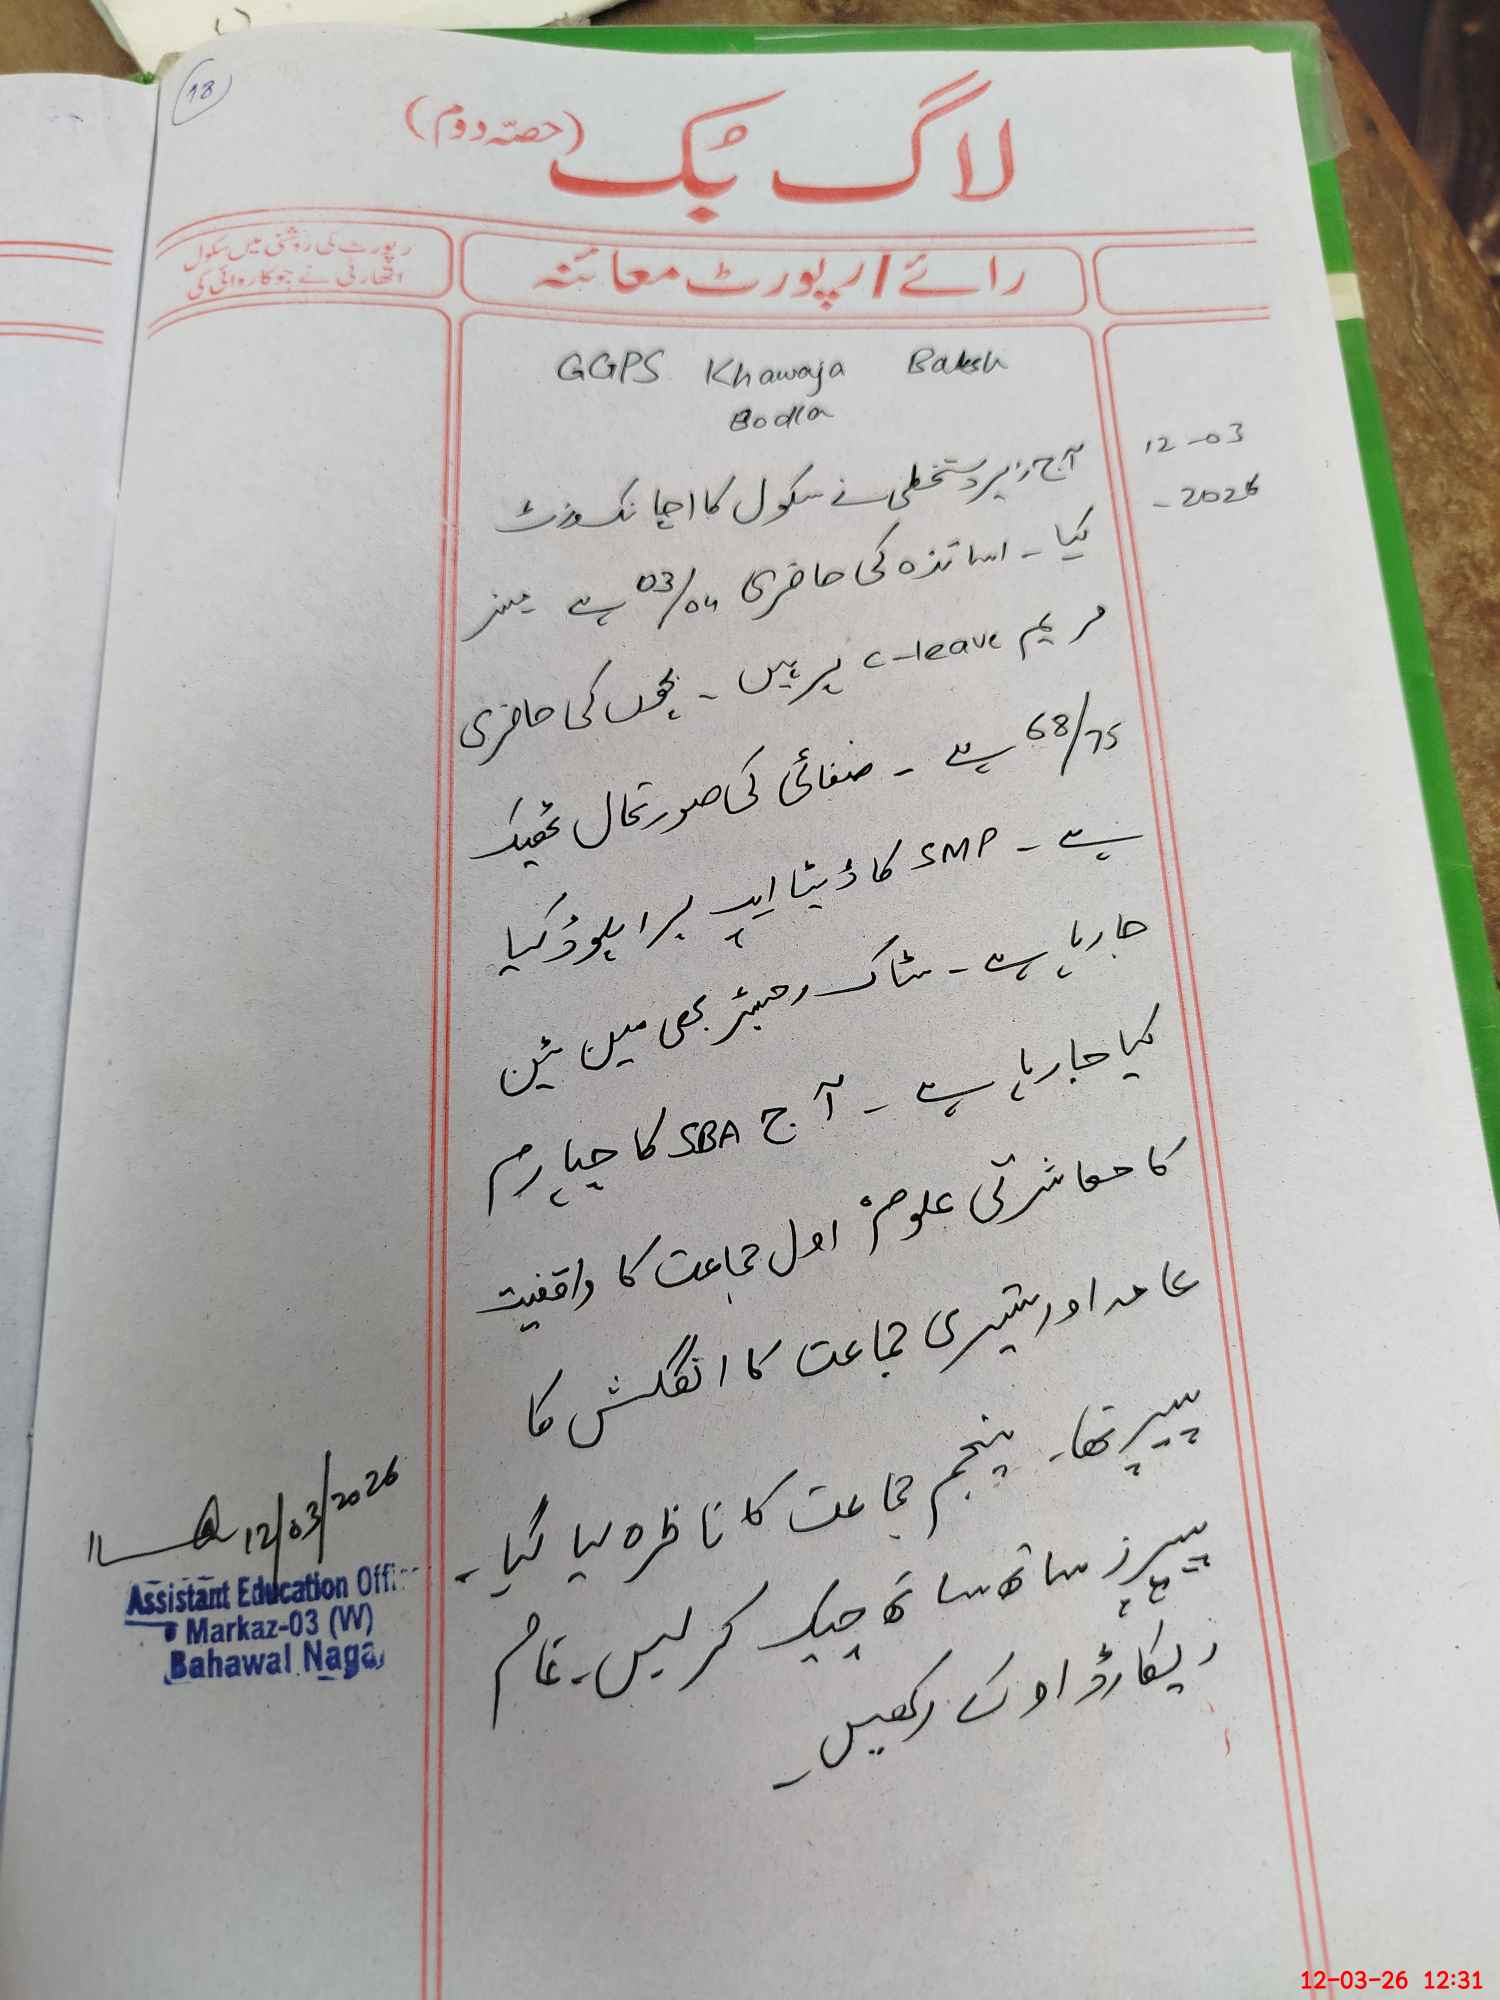 18
لاگ بُک (حصّہ دوم)
رائے / رپورٹ معائنہ
رپورٹ کی روشنی میں سکول
اتھارٹی نے جو کاروائی کی
GGPS Khawaja Baksh
Bodla
12-03
-2026
آج زیر دستخطی نے سکول کا اچانک وزٹ
کیا ۔ اساتذہ کی حاضری 03/04 ہے مسز
مریم c-leave پر ہیں ۔ بچوں کی حاضری
68/75 ہے ۔ صفائی کی صورتحال ٹھیک
ہے ۔ SMP کا ڈیٹا ایپ پر اپلوڈ کیا
جا رہا ہے ۔ سٹاک رجسٹر بھی مین ٹین
کیا جا رہا ہے ۔ آج SBA کا چہارم
کا معاشرتی علوم، اول جماعت کا واقفیت
عامہ اور تیسری جماعت کا انگلش کا
پیپر تھا۔ پنجم جماعت کا ناظرہ لیا گیا ۔
پیپرز ساتھ ساتھ چیک کر لیں۔ تمام
ریکارڈ اوکے رکھیں ۔
12/03/2026
Assistant Education Offi
Markaz-03 (W)
Bahawal Naga
12-03-26 12:31